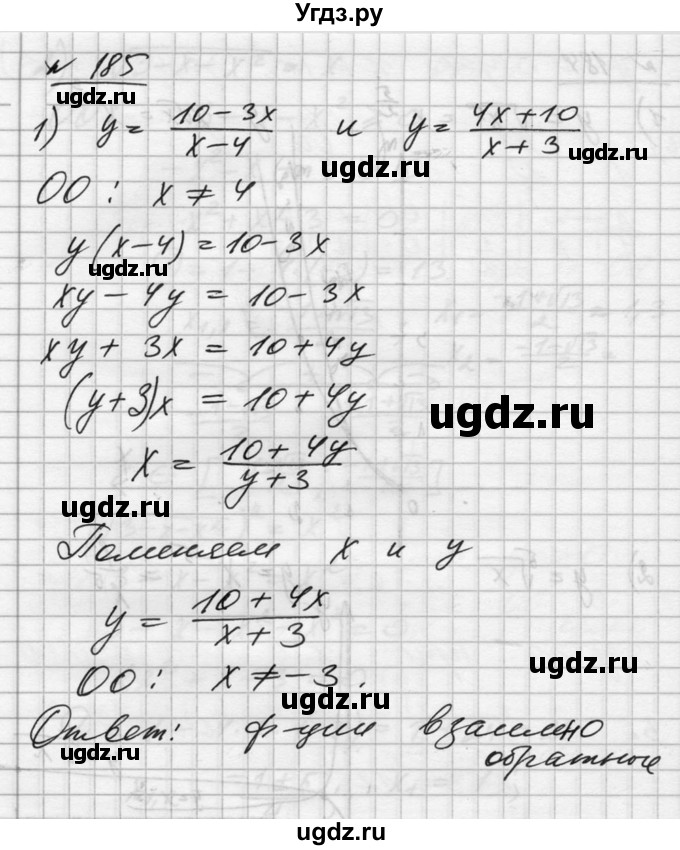 Угдз.ру
№ 185
ugdz.ru
1) y = (10 − 3x)/(x − 4) и y = (4x + 10)/(x + 3)
ugdz.ru ugdz.ru
ОО: x ≠ 4
y(x − 4) = 10 − 3x
ugdz.ru
xy − 4y = 10 − 3x
xy + 3x = 10 + 4y
(y + 3)x = 10 + 4y
ugdz.ru
x = (10 + 4y)/(y + 3)
ugdz.ru
Поменяем x и y
y = (10 + 4x)/(x + 3)
ugdz.ru
ОО: x ≠ −3.
ugdz.ru
Ответ: ф-ции взаимно
обратные
ugdz.ru
ugdz.ru